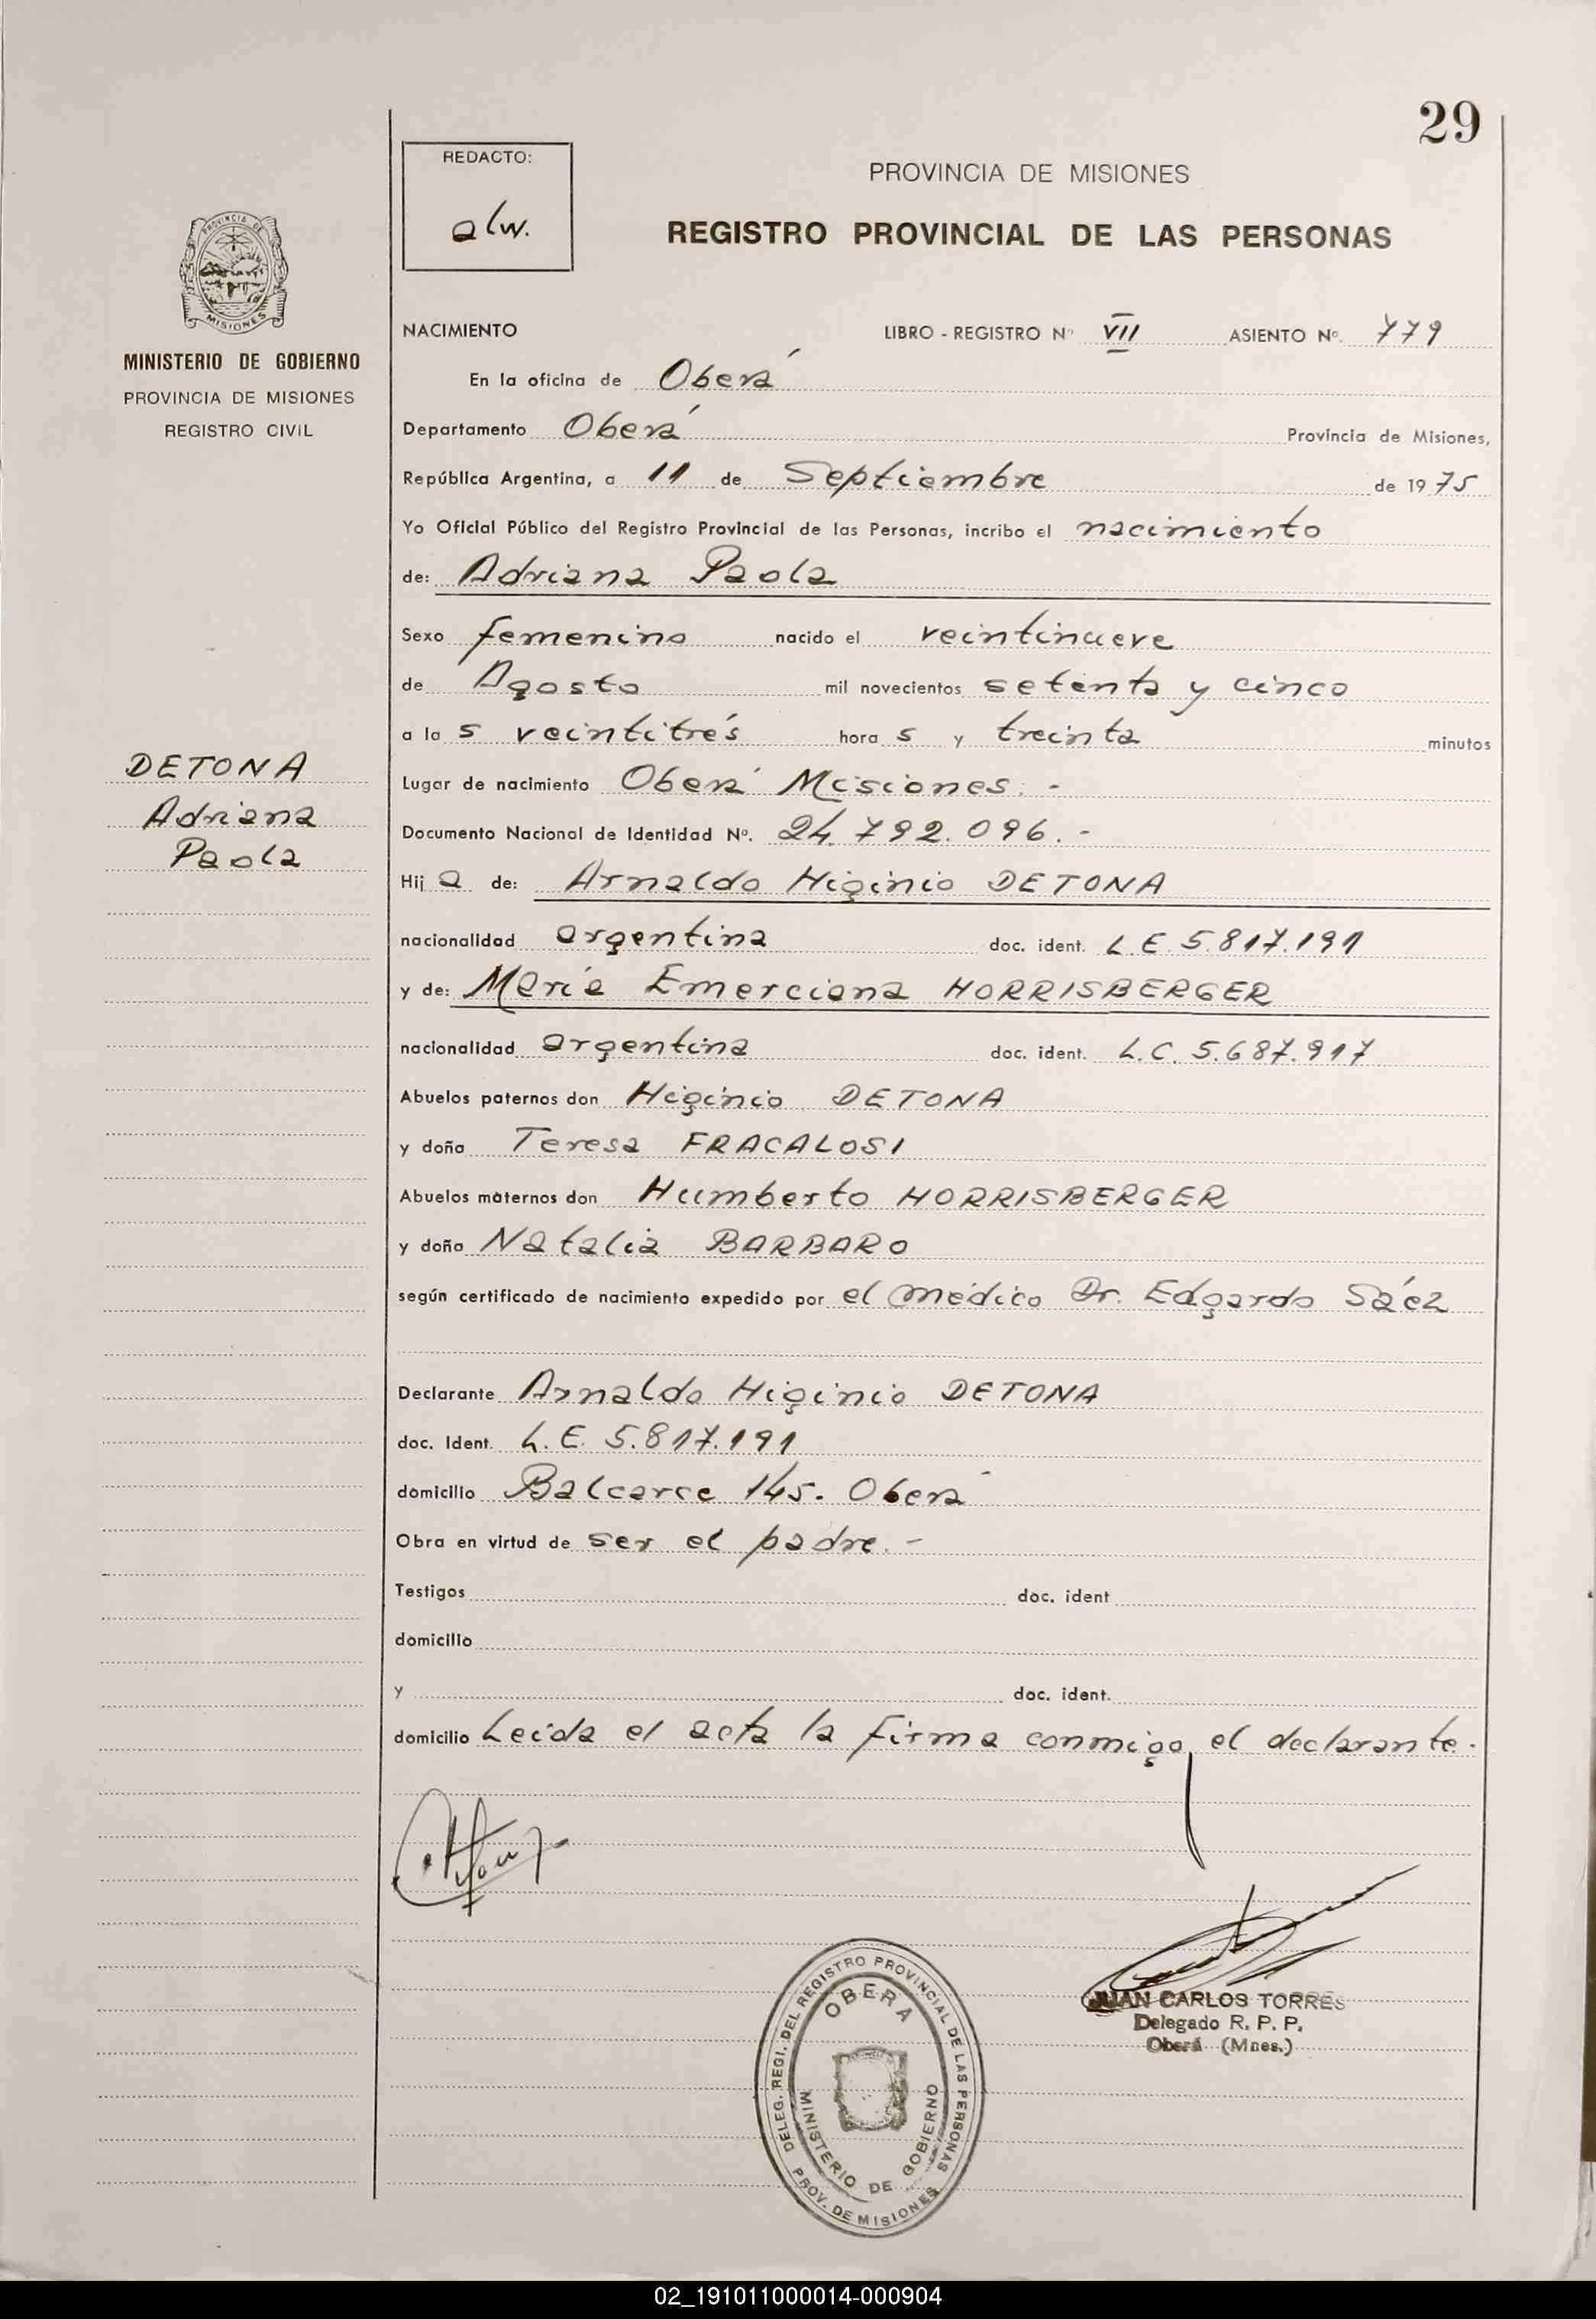 29
REDACTO:
alw.
PROVINCIA DE MISIONES
REGISTRO PROVINCIAL DE LAS PERSONAS
PROVINCIA DE
MISIONES
MINISTERIO DE GOBIERNO
PROVINCIA DE MISIONES
REGISTRO CIVIL
NACIMIENTO LIBRO - REGISTRO Nº VII ASIENTO Nº. 779
En la oficina de Oberá
Departamento Oberá Provincia de Misiones,
República Argentina, a 11 de Septiembre de 1975
Yo Oficial Público del Registro Provincial de las Personas, incribo el nacimiento
de: Adriana Paola
Sexo femenino nacido el veintinueve
de Agosto mil novecientos setenta y cinco
a la s veintitrés hora s y treinta minutos
DETONA
Adriana
Paola
Lugar de nacimiento Oberá Misiones. -
Documento Nacional de Identidad Nº. 24.792.096. -
Hij a de: Arnaldo Higinio DETONA
nacionalidad argentina doc. ident. L.E. 5.817.191
y de: María Emerciana HORRISBERGER
nacionalidad argentina doc. ident. L.C. 5.687.917
Abuelos paternos don Higinio DETONA
y doña Teresa FRACALOSI
Abuelos maternos don Humberto HORRISBERGER
y doña Natalia BARBARO
según certificado de nacimiento expedido por el médico Dr. Edgardo Sáez
Declarante Arnaldo Higinio DETONA
doc. Ident. L.E. 5.817.191
domicilio Balcarce 145. Oberá
Obra en virtud de ser el padre. -
Testigos doc. ident
domicilio
y doc. ident.
domicilio Leída el acta la firma conmigo el declarante.
JUAN CARLOS TORRES
Delegado R. P. P.
Oberá (Mnes.)
DELEG. REGI. DEL REGISTRO PROVINCIAL DE LAS PERSONAS
OBERA
MINISTERIO DE GOBIERNO
PROV. DE MISIONES
02_191011000014-000904